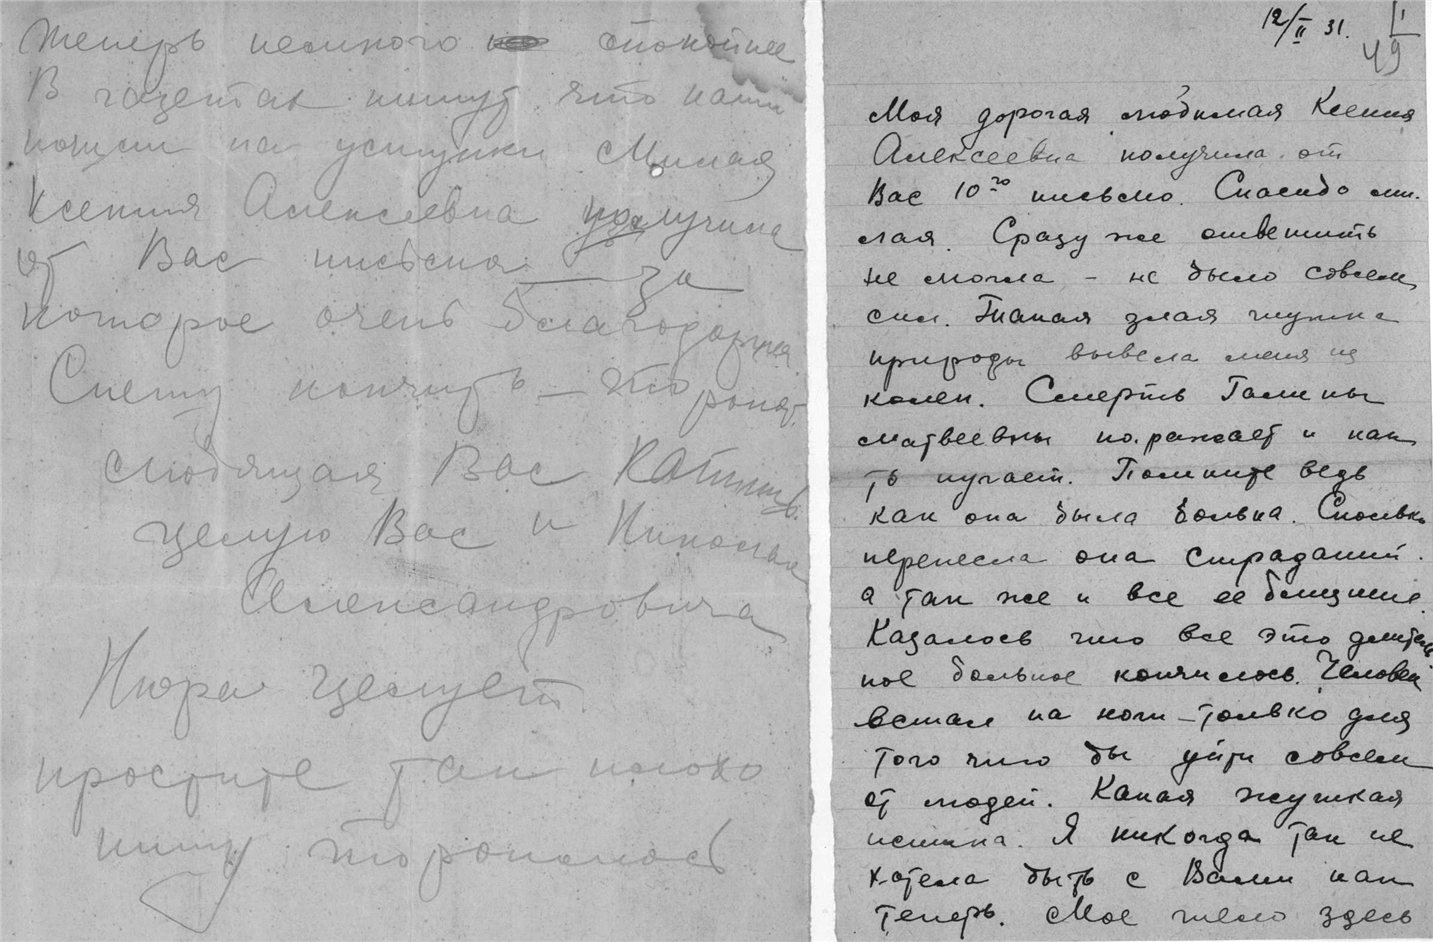 Теперь немного спокойнее
В газетах пишут что наши
пошли на уступки Милая
Ксения Алексеевна получила
от Вас письмо — за
которое очень благодарна
Спешу кончить — тороплюсь
любящая Вас
целую Вас и Николая
Александровича
Нюра целует
простите так плохо
пишу торопилась
12/II 31.
49
Моя дорогая любимая Ксения
Алексеевна получила от
Вас 10го письмо. Спасибо ми-
лая. Сразу же ответить
не могла – не было совсем
сил. Такая злая шутка
природы вывела меня из
колеи. Смерть Галины
Матвеевны поражает и как
то пугает. Помните ведь
как она была больна. Сколько
перенесла она страданий.
а так же и все ее близкие.
Казалось что все это длитель
ное больное кончилось. Человек
встал на ноги – только для
того что бы уйти совсем
от людей. Какая жуткая
истина. Я никогда так не
хотела быть с Вами как
теперь. Мое тело здесь